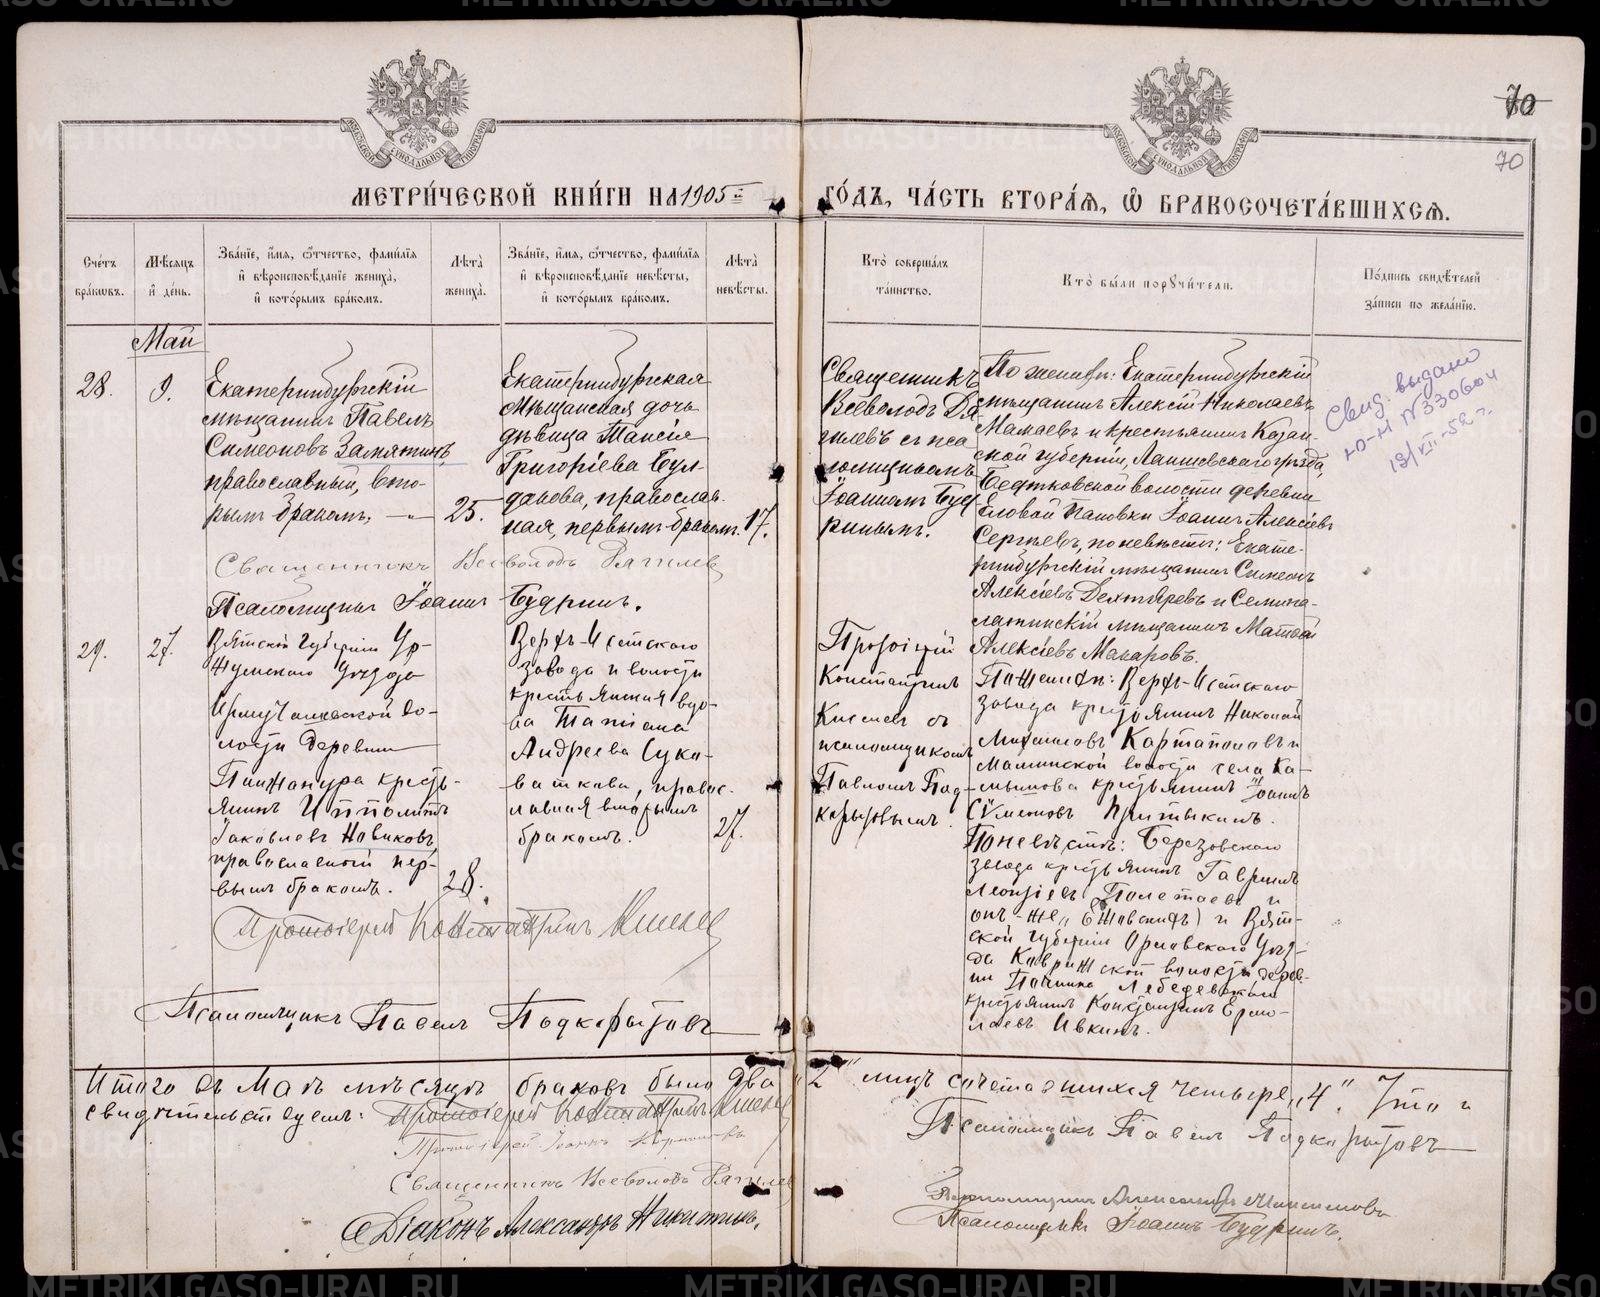 70
70
МЕТРИ́ЧЕСКОЙ КНИ́ГИ НА 1905 й
ГО́ДЪ, ЧА́СТЬ ВТОРА́Я, Ѿ БРАКОСОЧЕТА́ВШИХСЯ.
Сче́тъ
бра́ковъ.
Мѣсяцъ
и́ де́нь.
Зва́нїе, и́мя, о́тчество, фами́лїя
и́ вѣроисповѣ́данїе жениха̀,
и́ кото́рымъ бра́комъ.
Лѣ́та
жениха̀.
Зва́нїе, и́мя, о́тчество, фами́лїя
и́ вѣроисповѣ́данїе невѣ́сты,
и́ кото́рымъ бра́комъ.
Лѣ́та
невѣ́сты.
Кто̀ соверша́лъ
та́инство.
Кто̀ бы́ли порꙋчи́тели.
По́дпись свидѣ́телей
за́писи по жела́нїю.
Май
28.
9.
Екатеринбургскій
мѣщанинъ Павелъ
Симеоновъ Замятинъ,
православный, вто-
рымъ бракомъ, —
25.
Екатеринбургская
мѣщанская дочь
дѣвица Таисія
Григоріева Бул-
дакова, православ-
ная, первымъ бракомъ.
17.
Священникъ
Всеволодъ
съ пса
ломщикомъ
Іоанномъ Буд
ринымъ.
По женихѣ: Екатеринбургскій
мѣщанинъ Алексій Николаевъ
Мамаевъ и крестьянинъ Казан-
ской губерніи, Лаишевскаго уѣзда,
волости деревни
Іоаннъ Алексіевъ
Сергѣевъ, по невѣстѣ: Екате-
ринбургскій мѣщанинъ Симеонъ
Алексіевъ Дехтяревъ и Семипа-
латинскій мѣщанинъ Матѳей
Алексіевъ Макаровъ.
Свид. выдано
Ю-Н №330604
Священникъ Всеволодъ
Псаломщикъ Іоаннъ Будринъ.
29.
27.
Вятской Губерніи Ур-
жумскаго Уѣзда
во-
лости деревни
кресть-
янинъ Ипполитъ
Іаковлевъ Новиковъ,
православный пер-
вымъ бракомъ.
28.
Верхъ-Исетскаго
завода и волости
крестьянская вдо-
ва Татіана
Андреева Суко-
ваткова, правос-
лавная вторымъ
бракомъ.
27.
Протоіерей
Константинъ
съ
псаломщикомъ
Павломъ Под-
корытовымъ.
По женихѣ: Верхъ-Исетскаго
завода крестьянинъ Николай
Михаиловъ Картаполовъ и
Маминской волости села Ка-
мышева крестьянинъ Іоаннъ
Сѵмеоновъ Притыкинъ.
По невѣстѣ: Березовскаго
завода крестьянинъ Гавріилъ
Леонтіевъ Полетаевъ и
онъ-же, Ежовскихъ) и Вят-
ской губерніи Орловскаго Уѣз-
да волости дерев-
ни Починка Лебедевскаго
крестьянинъ Константинъ Ермо-
лаевъ Ивкинъ.
Протоіерей Константинъ
Псаломщикъ Павелъ Подкорытовъ
Итого въ Маѣ мѣсяцѣ браковъ было два „2“ лицъ сочетавшихся четыре „4“. Что и
свидѣтельствуемъ: Протоіерей Константинъ
Псаломщикъ Павелъ Подкорытовъ
Протоіерей Іоаннъ
Священникъ Всеволодъ
Псаломщикъ Александръ
Діаконъ Александръ Никитинъ.
Псаломщикъ Іоаннъ Будринъ.
METRIKI.GASO-URAL.RU